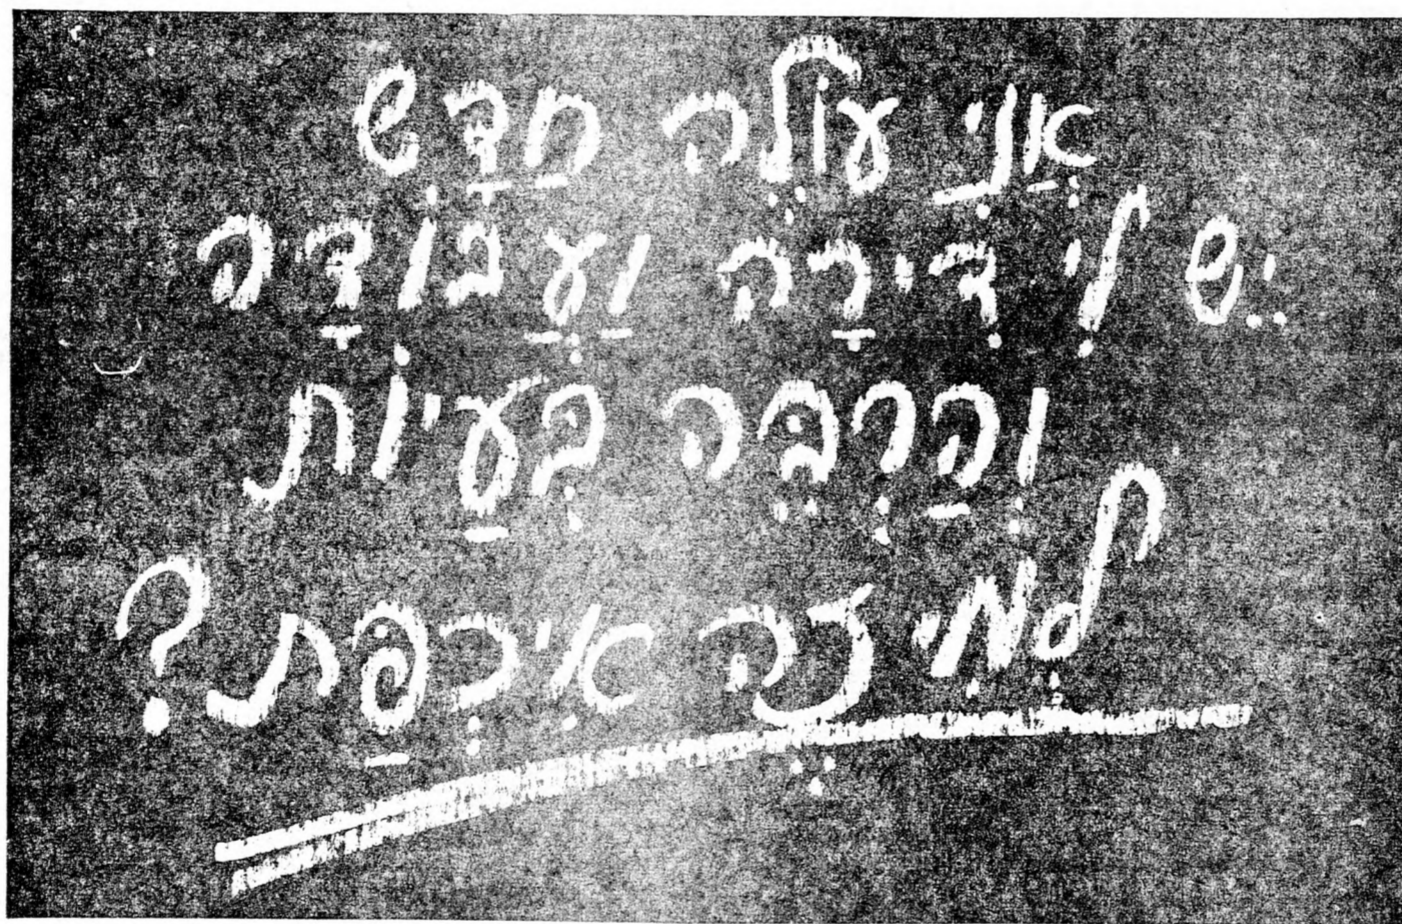 אֲנִי עוֹלֶה חָדָשׁ
יֵשׁ לִי דִּירָה וַעֲבוֹדָה
וְהַרְבֵּה בְּעָיוֹת
לְמִי זֶה אִיכְפַּת?